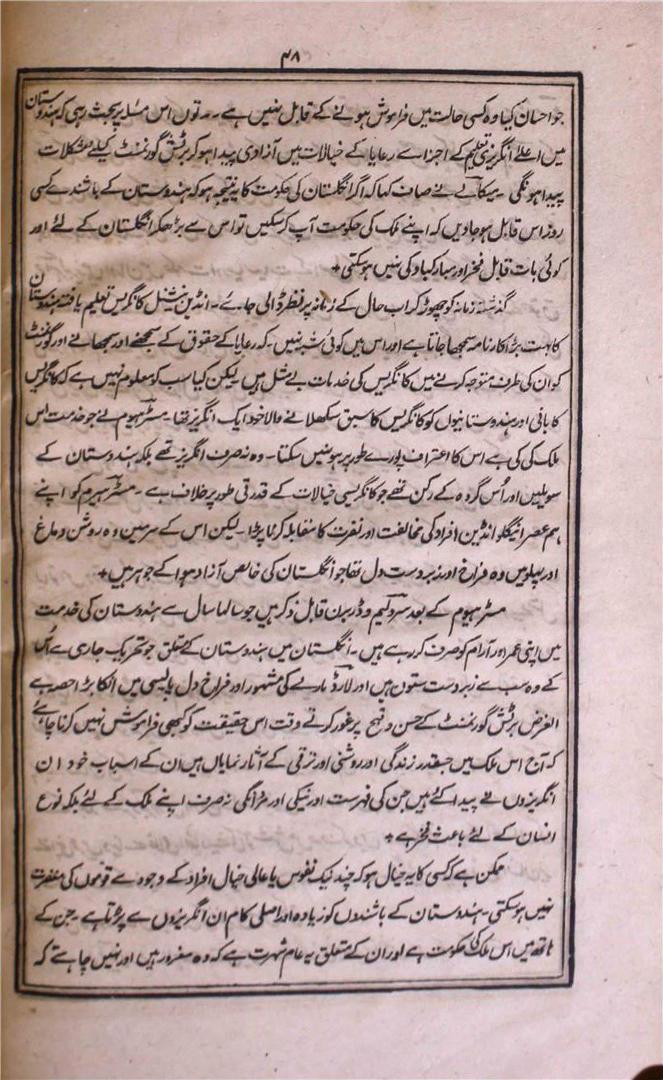 ۴۸
جو احسان کیا وہ کسی حالت میں فراموش ہونے کے قابل نہیں ہے۔ مدتوں اس مسئلہ پر بحث رہی کہ ہندوستان
میں اعلےٰ انگریزی تعلیم کے اجراء سے رعایا کے خیالات میں آزادی پیدا ہو کر برٹش گورنمنٹ کیلئے مشکلات
پیدا ہونگی۔ میکالے نے صاف کہا کہ اگر انگلستان کی حکومت کا یہ نتیجہ ہو کہ ہندوستان کے باشندے کسی
روز اس قابل ہو جاویں کہ اپنے ملک کی حکومت آپ کر سکیں تو اس سے بڑھکر انگلستان کے لئے اور
کوئی بات قابل فخر اور مبارکباد کی نہیں ہو سکتی +
گذشتہ زمانہ کو چھوڑ کر اب حال کے زمانہ پر نظر ڈالی جائے۔ انڈین نیشنل کانگریس تعلیم یافتہ ہندوستان
کا بہت بڑا کارنامہ سمجھا جاتا ہے اور اس میں کوئی شبہ نہیں۔ کہ رعایا کے حقوق کے سمجھنے اور سمجھانے اور گورنمنٹ
کو ان کی طرف متوجہ کرنے میں کانگریس کی خدمات بے مثل ہیں۔ لیکن کیا سب کو معلوم نہیں ہے کہ کانگریس
کا بانی اور ہندوستانیوں کو کانگریس کا سبق سکھلانے والا خود ایک انگریز تھا۔ مسٹر ہیوم نے جو خدمت اس
ملک کی کی ہے اس کا اعتراف پورے طور پر ہو نہیں سکتا۔ وہ نہ صرف انگریز تھے بلکہ ہندوستان کے
سویلین اور اُس گروہ کے رکن تھے جو کانگریسی خیالات کے قدرتی طور پر خلاف ہے۔ مسٹر ہیوم کو اپنے
ہم عصر اینگلو انڈین افراد کی مخالفت اور نفرت کا مقابلہ کرنا پڑا۔ لیکن اس کے سر میں وہ روشن دماغ
اور پہلو میں وہ فراخ اور زبردست دل تھا جو انگلستان کی خالص آزاد ہوا کے جوہر ہیں +
مسٹر ہیوم کے بعد سر ولیم ویڈربرن قابل ذکر ہیں جو سالہا سال سے ہندوستان کی خدمت
میں اپنی عمر اور آرام کو صرف کر رہے ہیں۔ انگلستان میں ہندوستان کے متعلق جو تحریک جاری ہے اُس
کے وہ سب سے زبردست ستون ہیں اور لارڈ مارلے کی مشہور اور فراخ دل پالیسی میں انکا بڑا حصہ ہے
الغرض برٹش گورنمنٹ کے حسن و قبح پر غور کرتے وقت اس حقیقت کو کبھی فراموش نہیں کرنا چاہئے
کہ آج اس ملک میں جسقدر زندگی اور روشنی اور ترقی کے آثار نمایاں ہیں ان کے اسباب خود ان
انگریزوں نے پیدا کئے ہیں جن کی فہرست اور نیکی اور مردانگی نہ صرف اپنے ملک کے لئے بلکہ نوع
انسان کے لئے باعث فخر ہے +
ممکن ہے کسی کا یہ خیال ہو کہ چند نیک نفوس یا عالی خیال افراد کے وجود سے قوموں کی مغفرت
نہیں ہو سکتی۔ ہندوستان کے باشندوں کو زیادہ اور اصلی کام ان انگریزوں سے پڑتا ہے۔ جن کے
ہاتھ میں اس ملک کی حکومت ہے اور ان کے متعلق یہ عام شہرت ہے کہ وہ مغرور ہیں اور نہیں چاہتے کہ